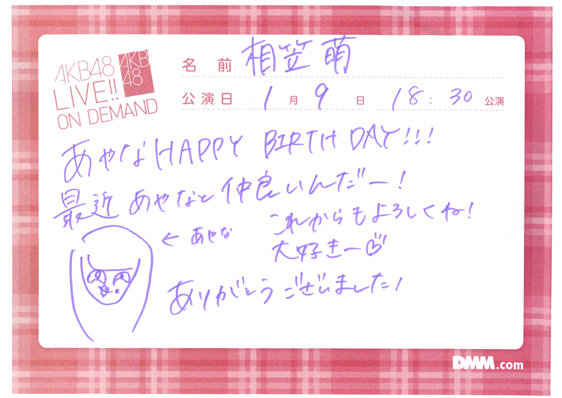 AKB48
LIVE!!
ON DEMAND
AKB
48
名前 相笠萌
公演日 1月9日 18:30公演
あやなHAPPY BIRTHDAY!!!
最近あやなと仲良いんだー!
← あやな
これからもよろしくね!
大好きー♡
ありがとうございました!
DMM.com